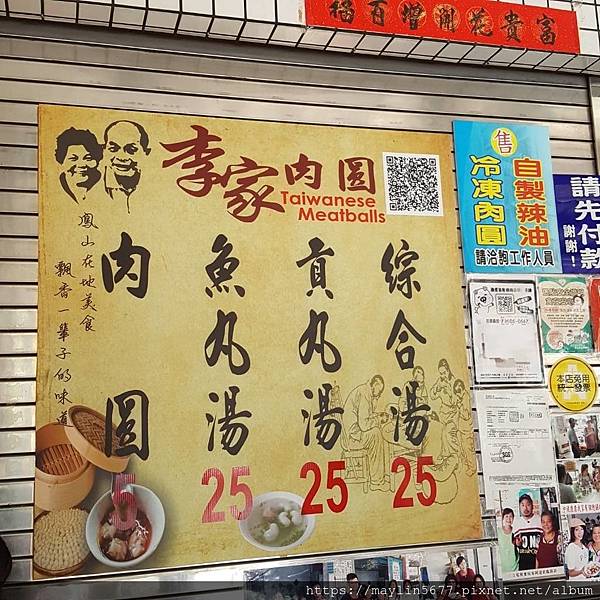 富貴花開增百福
李家肉圓
Taiwanese
Meatballs
鳳山在地美食
飄香一輩子的味道
肉圓
魚丸湯 25
貢丸湯 25
綜合湯 25
售
自製辣油
冷凍肉圓
請洽詢工作人員
請先付款
謝謝!
本店免用
統一發票
SGS
https://maylin5677.pixnet.net/album